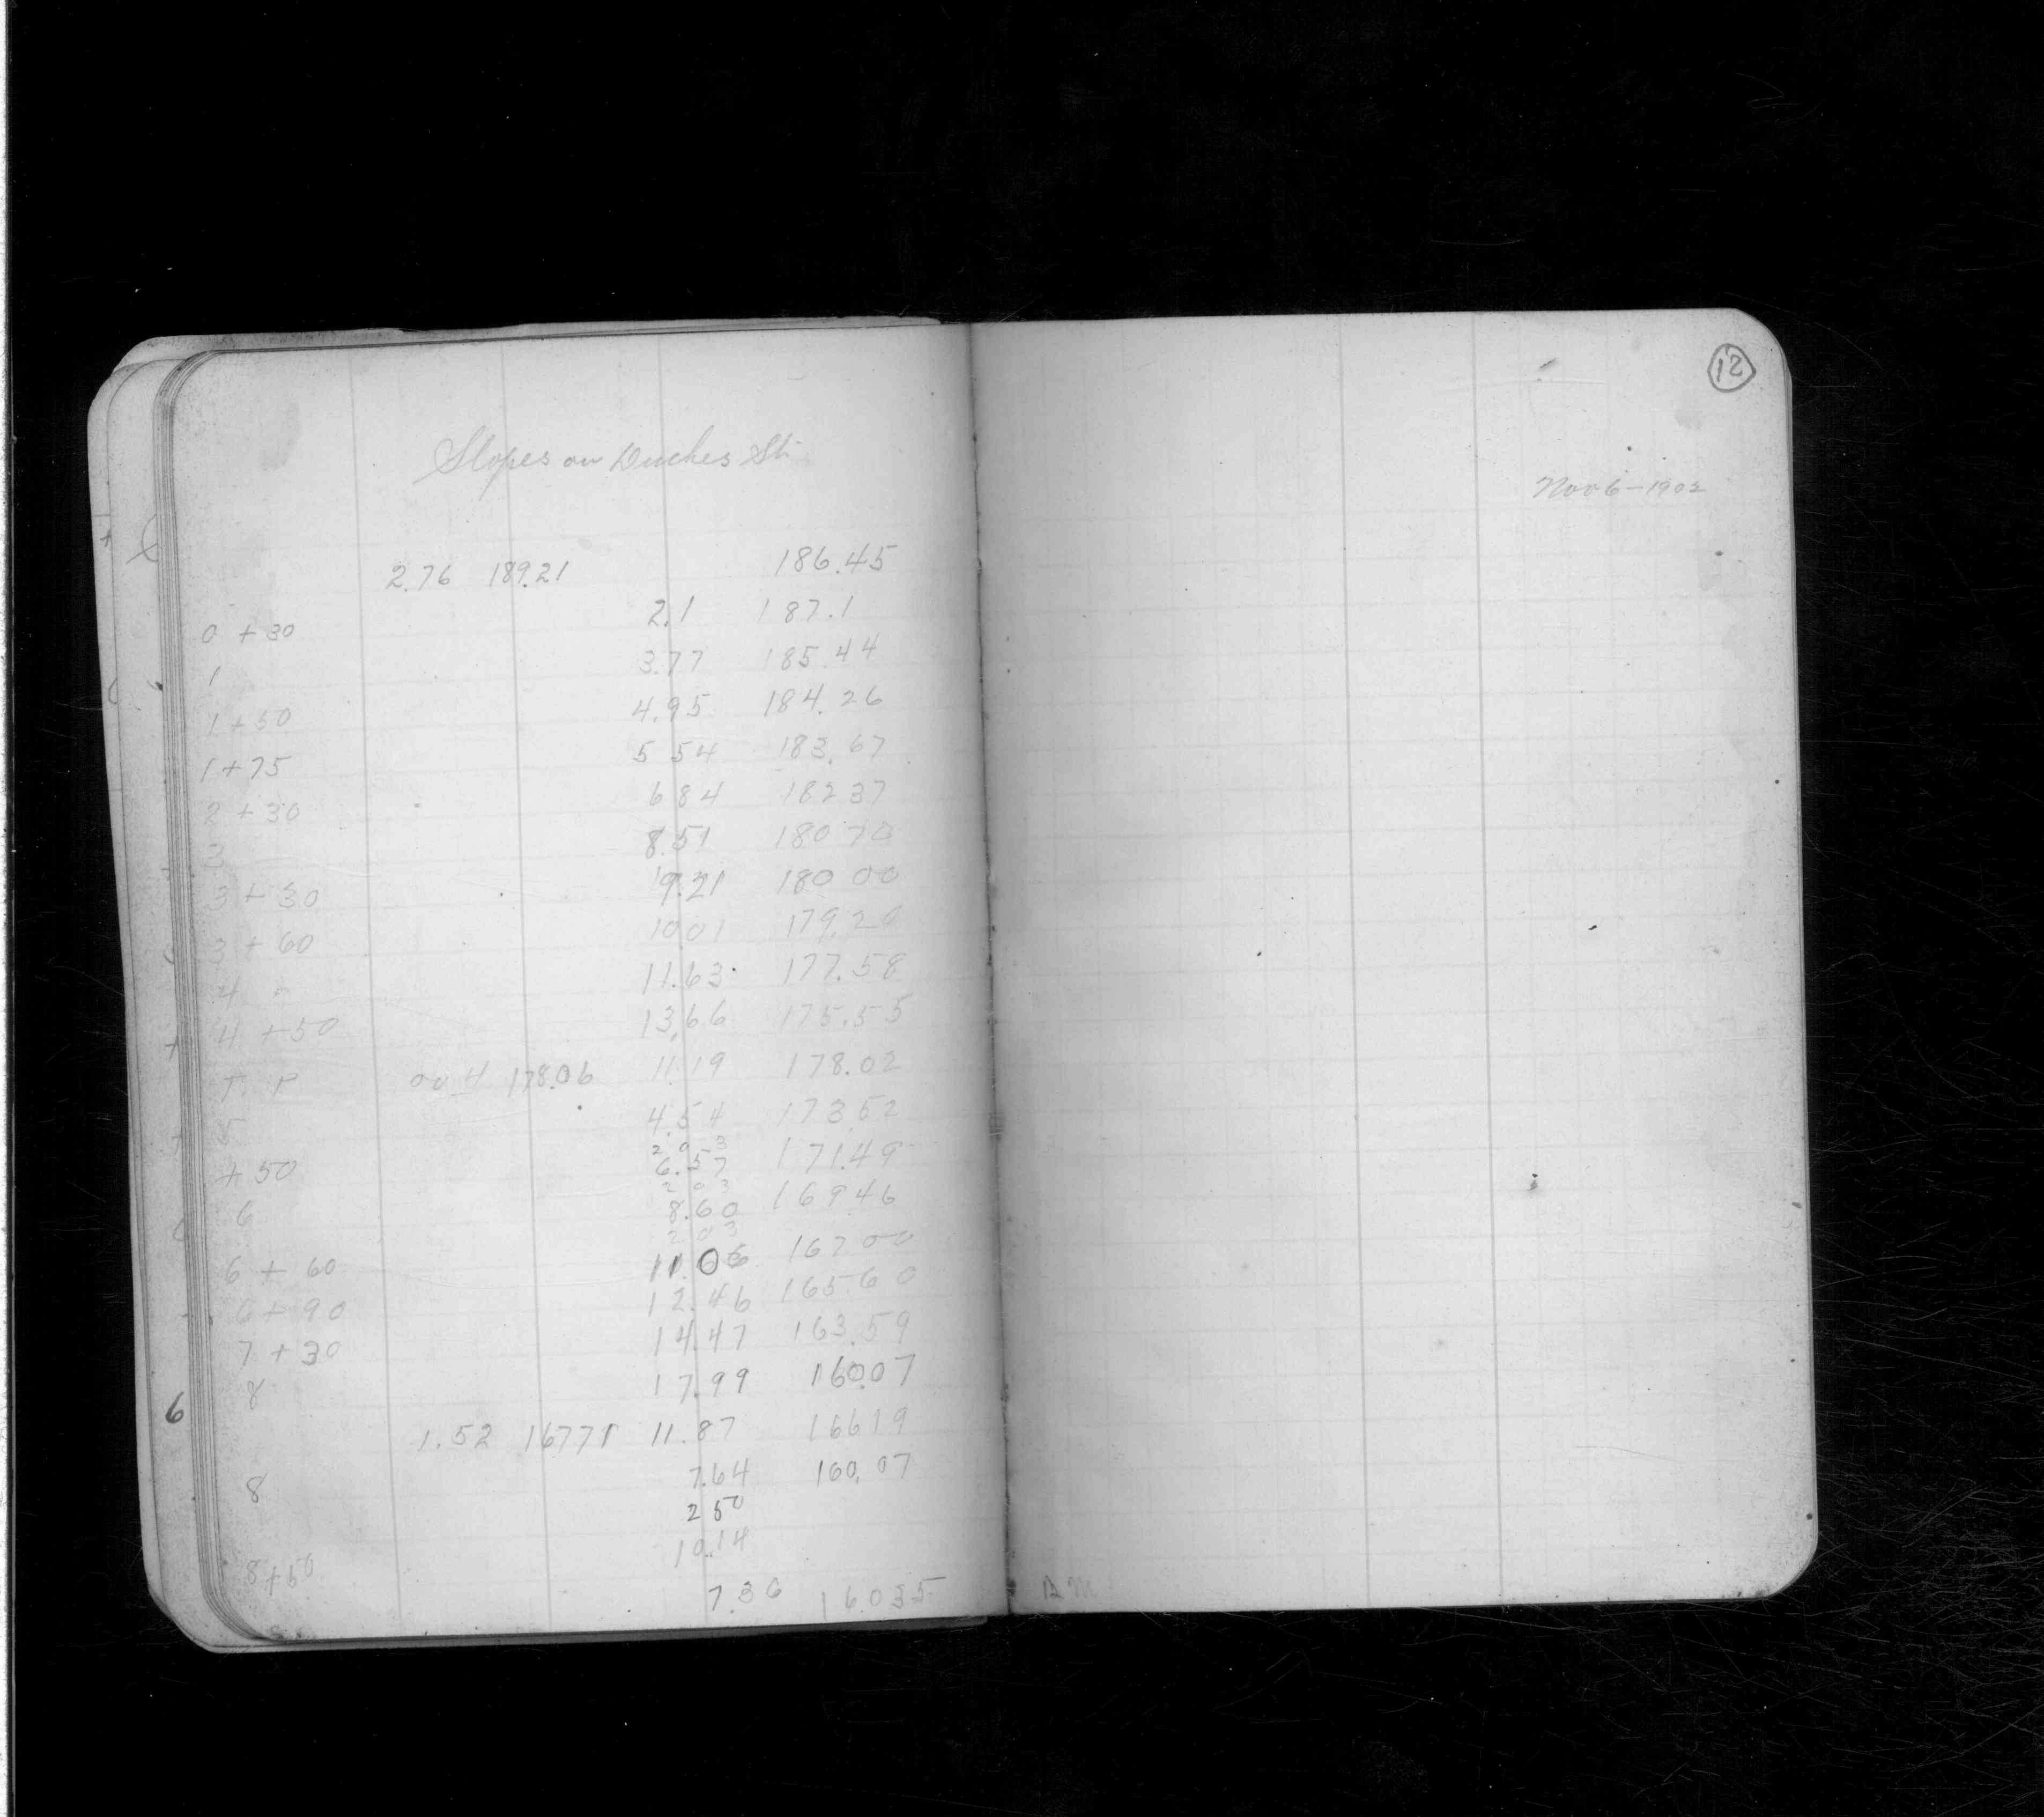 Slopes on Duches St.
2.76 189.21 186.45
0 + 30 2.1 187.1
1 3.77 185.44
1 + 50 4.95 184.26
1 + 75 5 54 183.67
2 + 30 6 84 182 37
3 8.51 180 70
3 + 30 9.21 180 00
3 + 60 10 01 179.20
4 11.63 177.58
4 + 50 13.66 175.55
T. P 0.04 178.06 11.19 178.02
5 4.54 173.52
2 0 3
+ 50 6.57 171.49
2 0 3
6 8.60 169 46
2 0 3
6 + 60 11.06 167 00
6 + 90 12.46 165 60
7 + 30 14.47 163.59
8 17.99 160.07
1.52 16771 11.87 16619
8 7.64 160.07
2 50
8 + 50 10.14
7.36 160 35
12
Nov 6 - 1902
B M
6